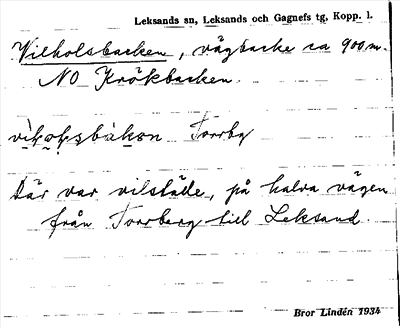 Leksands sn, Leksands och Gagnefs tg, Kopp. l.
Vilholsbacken, vägbacke ca 900 m.
NO Krökbacken.
Torrby
Där var vilställe, på halva vägen
från Torrberg till Leksand.
Bror Lindén 1934